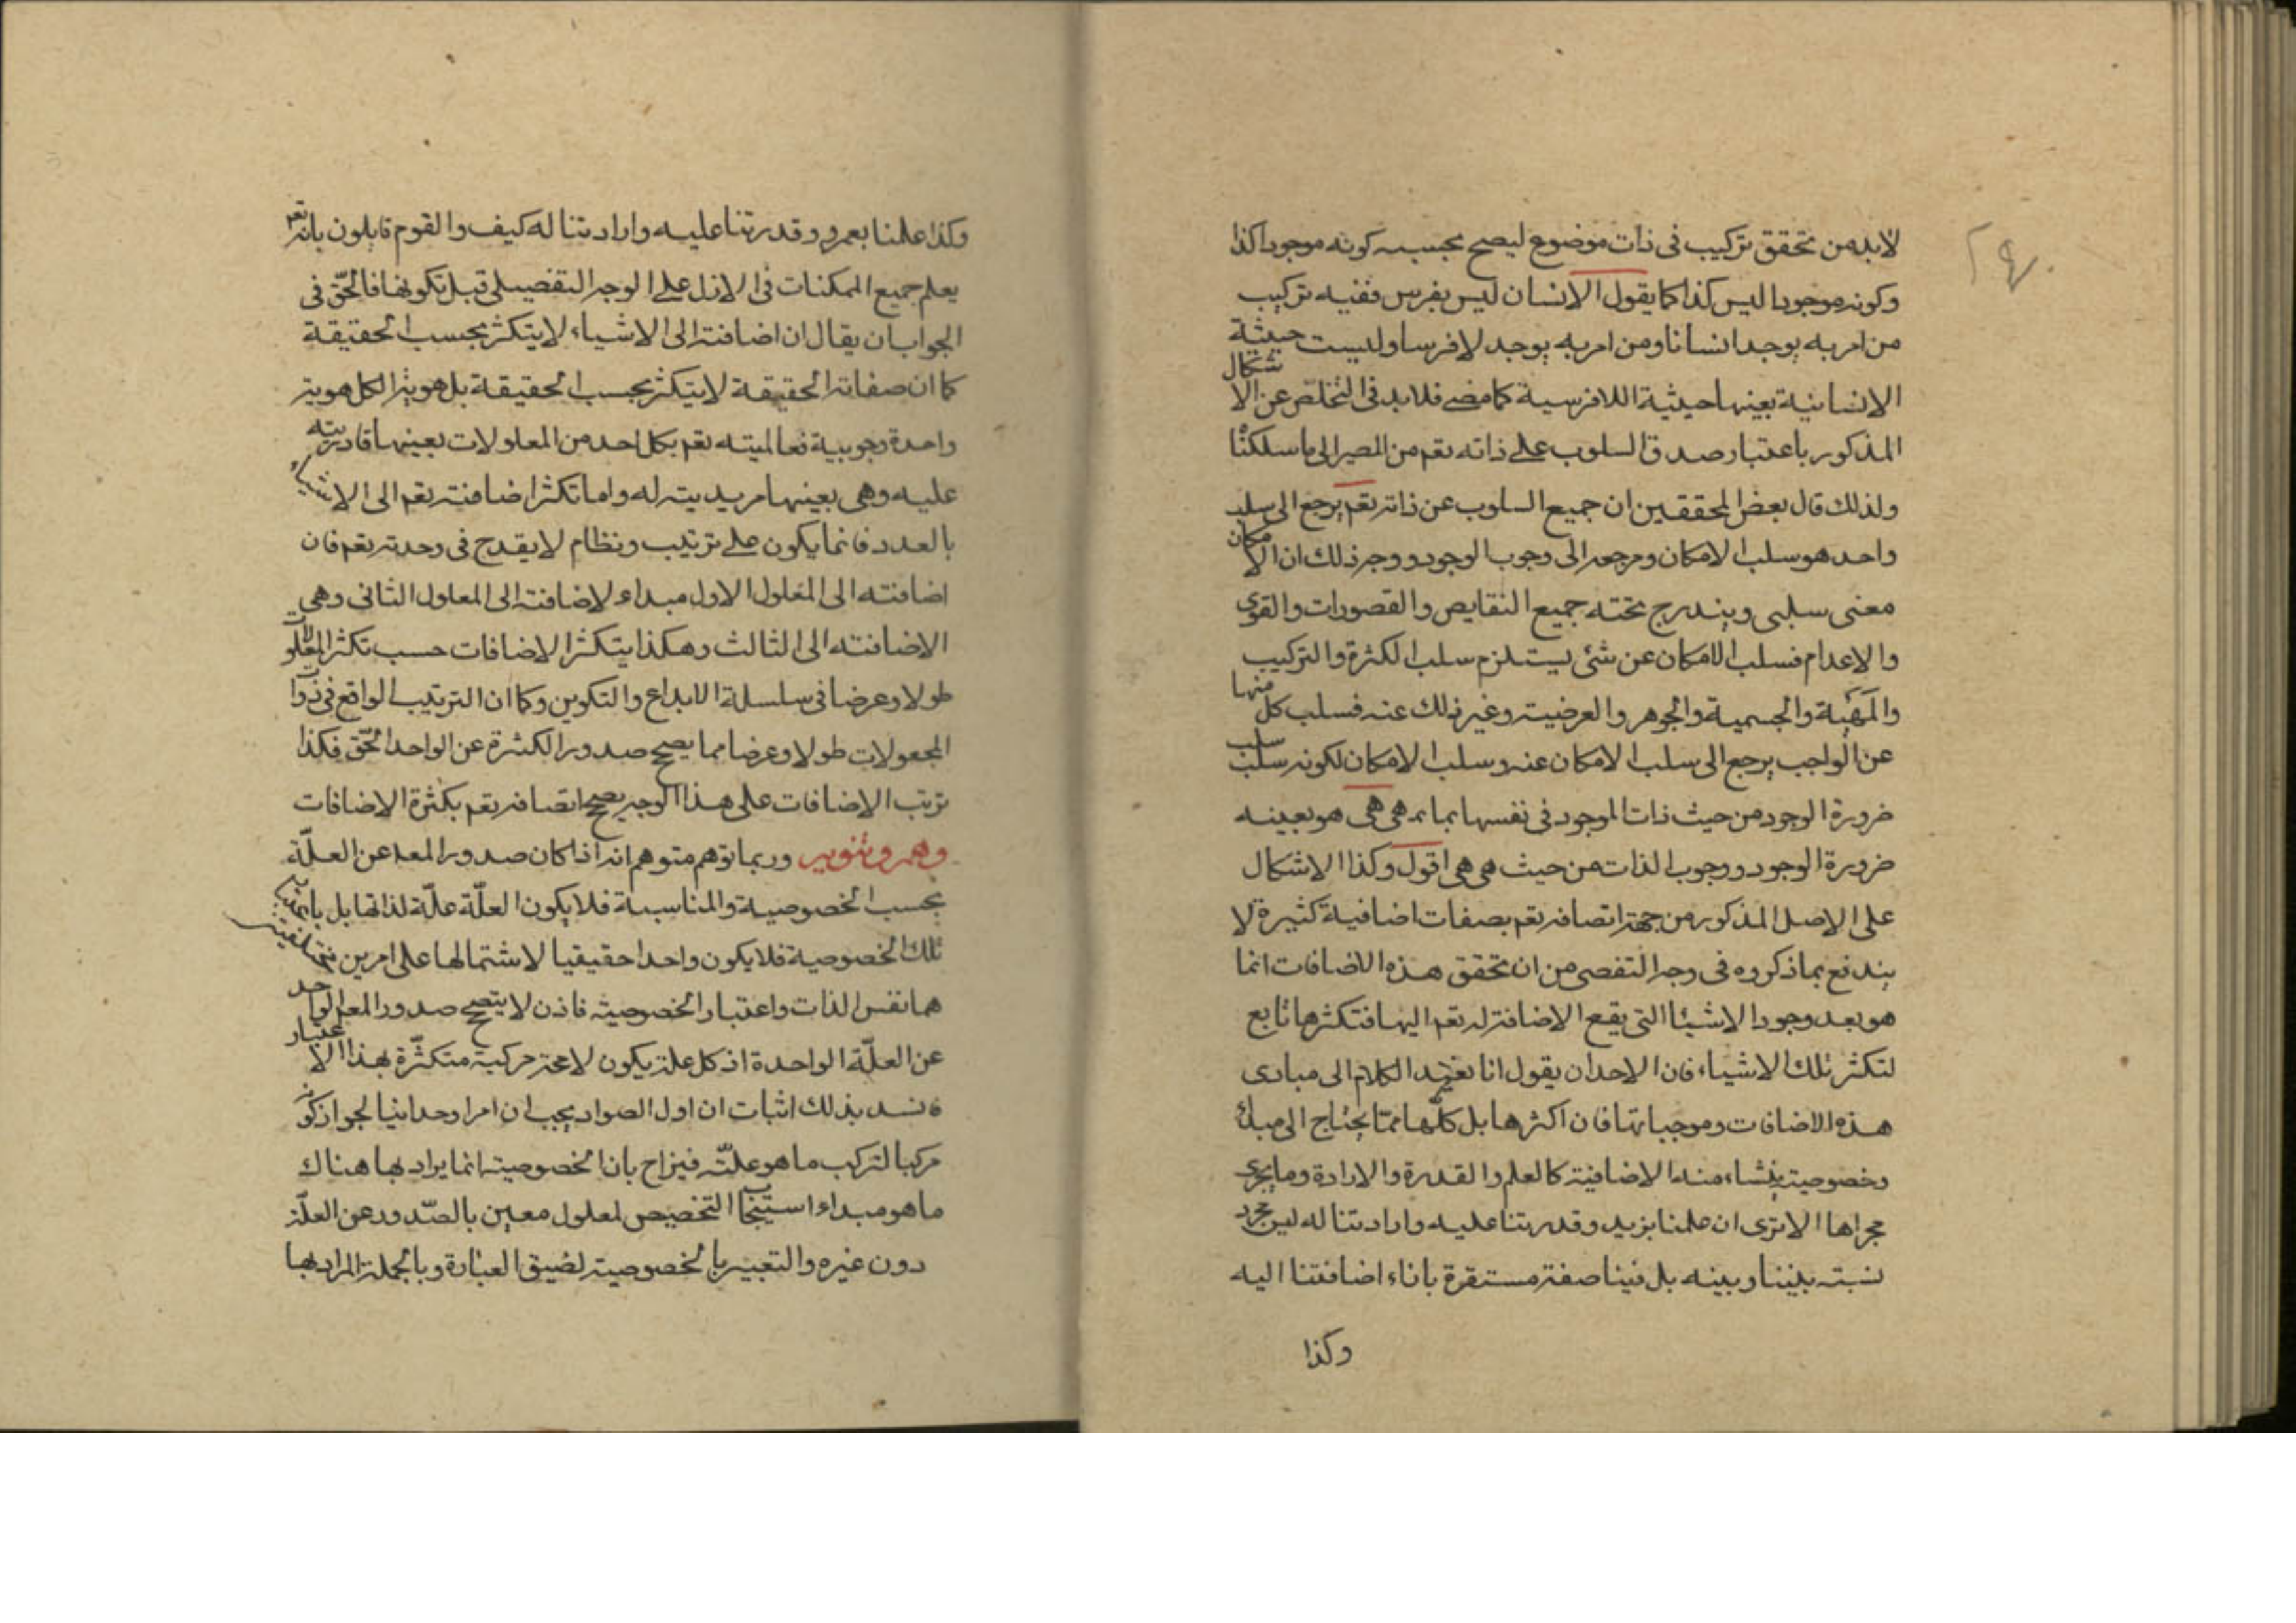 لابد من تحقق تركيب فى ذات موضوع ليصح بحسبه كونه موجودا كذا
وكونه موجودا ليس كذا كما يقول الانسان ليس بفرس ففيه تركيب
من امر به يوجد انسانا ومن امر به يوجد لا فرسا وليست حيثية
الانسانية بعينها حيثية اللافرسية كما مضى فلا بد فى التخلص عن الاشكال
المذكور باعتبار صدق السلوب على ذاته تعم من المصير الى ما سلكنا
ولذلك قال بعض المحققين ان جميع السلوب عن ذاته تعم يرجع الى سلب
واحد هو سلب الامكان ومرجعه الى وجوب الوجود ووجه ذلك ان الامكان
معنى سلبى ويندرج تحته جميع النقايص والقصورات والقوى
والاعدام فسلب الامكان عن شئ يستلزم سلب الكثرة والتركيب
والمهية والجسمية والجوهر والعرضية وغير ذلك عنه فسلب كل منها
عن الواجب يرجع الى سلب الامكان عنه وسلب الامكان لكونه سلب سلب
ضرورة الوجود من حيث ذات الموجود فى نفسها بما هى هى هو بعينه
ضرورة الوجود ووجوب الذات من حيث هى هى اقول وكذا الاشكال
على الاصل المذكور من جهة اتصافه تعم بصفات اضافية كثيرة لا
يندفع بما ذكروه فى وجه التفصى من ان تحقق هذه الاضافات انما
هو بعد وجود الاشيئا التى يقع الاضافة له تعم اليها فتكثرها تابع
لتكثر تلك الاشياء فان لاحد ان يقول انا الكلام الى مبادى
هذه الاضافات وموجباتها فان اكثرها بل كلها مما يحتاج الى مبدأ
وخصوصية ينشاء منه الاضافية كالعلم والقدرة والارادة وما يجرى
مجراها الا ترى ان علمنا بزيد وقدرتنا عليه وارادتنا له ليس مجرد
نسبته بيننا وبينه بل فينا صفة مستقرة باناء اضافتنا اليه
وكذا
وكذا علمنا بعمرو وقدرتنا عليه وارادتنا له كيف والقوم قايلون بانه تعم
يعلم جميع الممكنات فى الازل على الوجه التفصيلى قبل تكونها فالحق فى
الجواب ان يقال ان اضافته الى الاشياء لا يتكثر بحسب الحقيقة
كما ان صفاته الحقيقة لا يتكثر بحسب الحقيقة بل هوية الكل هوية
واحدة وجوبية فعالميته تعم بكل احد من المعلولات بعينها قادريته
عليه وهى بعينها مريديته له واما تكثر اضافته تعم الى الاشياء
بالعدد فانما يكون على ترتيب ونظام لا يقدح فى وحدته تعم فان
اضافته الى المعلول الاول مبداء لاضافته الى المعلول الثانى وهى
الاضافته الى الثالث وهكذا يتكثر الاضافات حسب تكثر المعلولات
طولا وعرضا فى سلسلة الابداع والتكوين وكما ان الترتيب الواقع فى ذوات
المجعولات طولا وعرضا مما يصح صدور الكثرة عن الواحد الحق فكذا
ترتب الاضافات على هذا الوجه يصح اتصافه تعم بكثرة الاضافات
وهم وتنوير وربما توهم متوهم انه اذا كان صدور المعـ عن العلّة
بحسب الخصوصية والمناسبة فلا يكون العلّة علّة لذاتها بل باعتبار
تلك الخصوصية فلا يكون واحدا حقيقيا لاشتمالها على امرين مختلفين
هما نفس الذات واعتبار الخصوصية فاذن لا يصح صدور المعـ الواحد
عن العلّة الواحدة اذ كل علة يكون لا محة مركبة متكثّرة بهذا الاعتبار
فانسد بذلك اثبات ان اول الصوادر يجب ان امرا وحدانيا لجواز كونه
مركبا لتركب ما هو علّته فيزاح بان الخصوصية انما يراد بها هناك
ما هو مبداء التخصيص لمعلول معين بالصّدور عن العلّة
دون غيره والتعبير بالخصوصية لضيق العبارة وبالجملة المراد بها